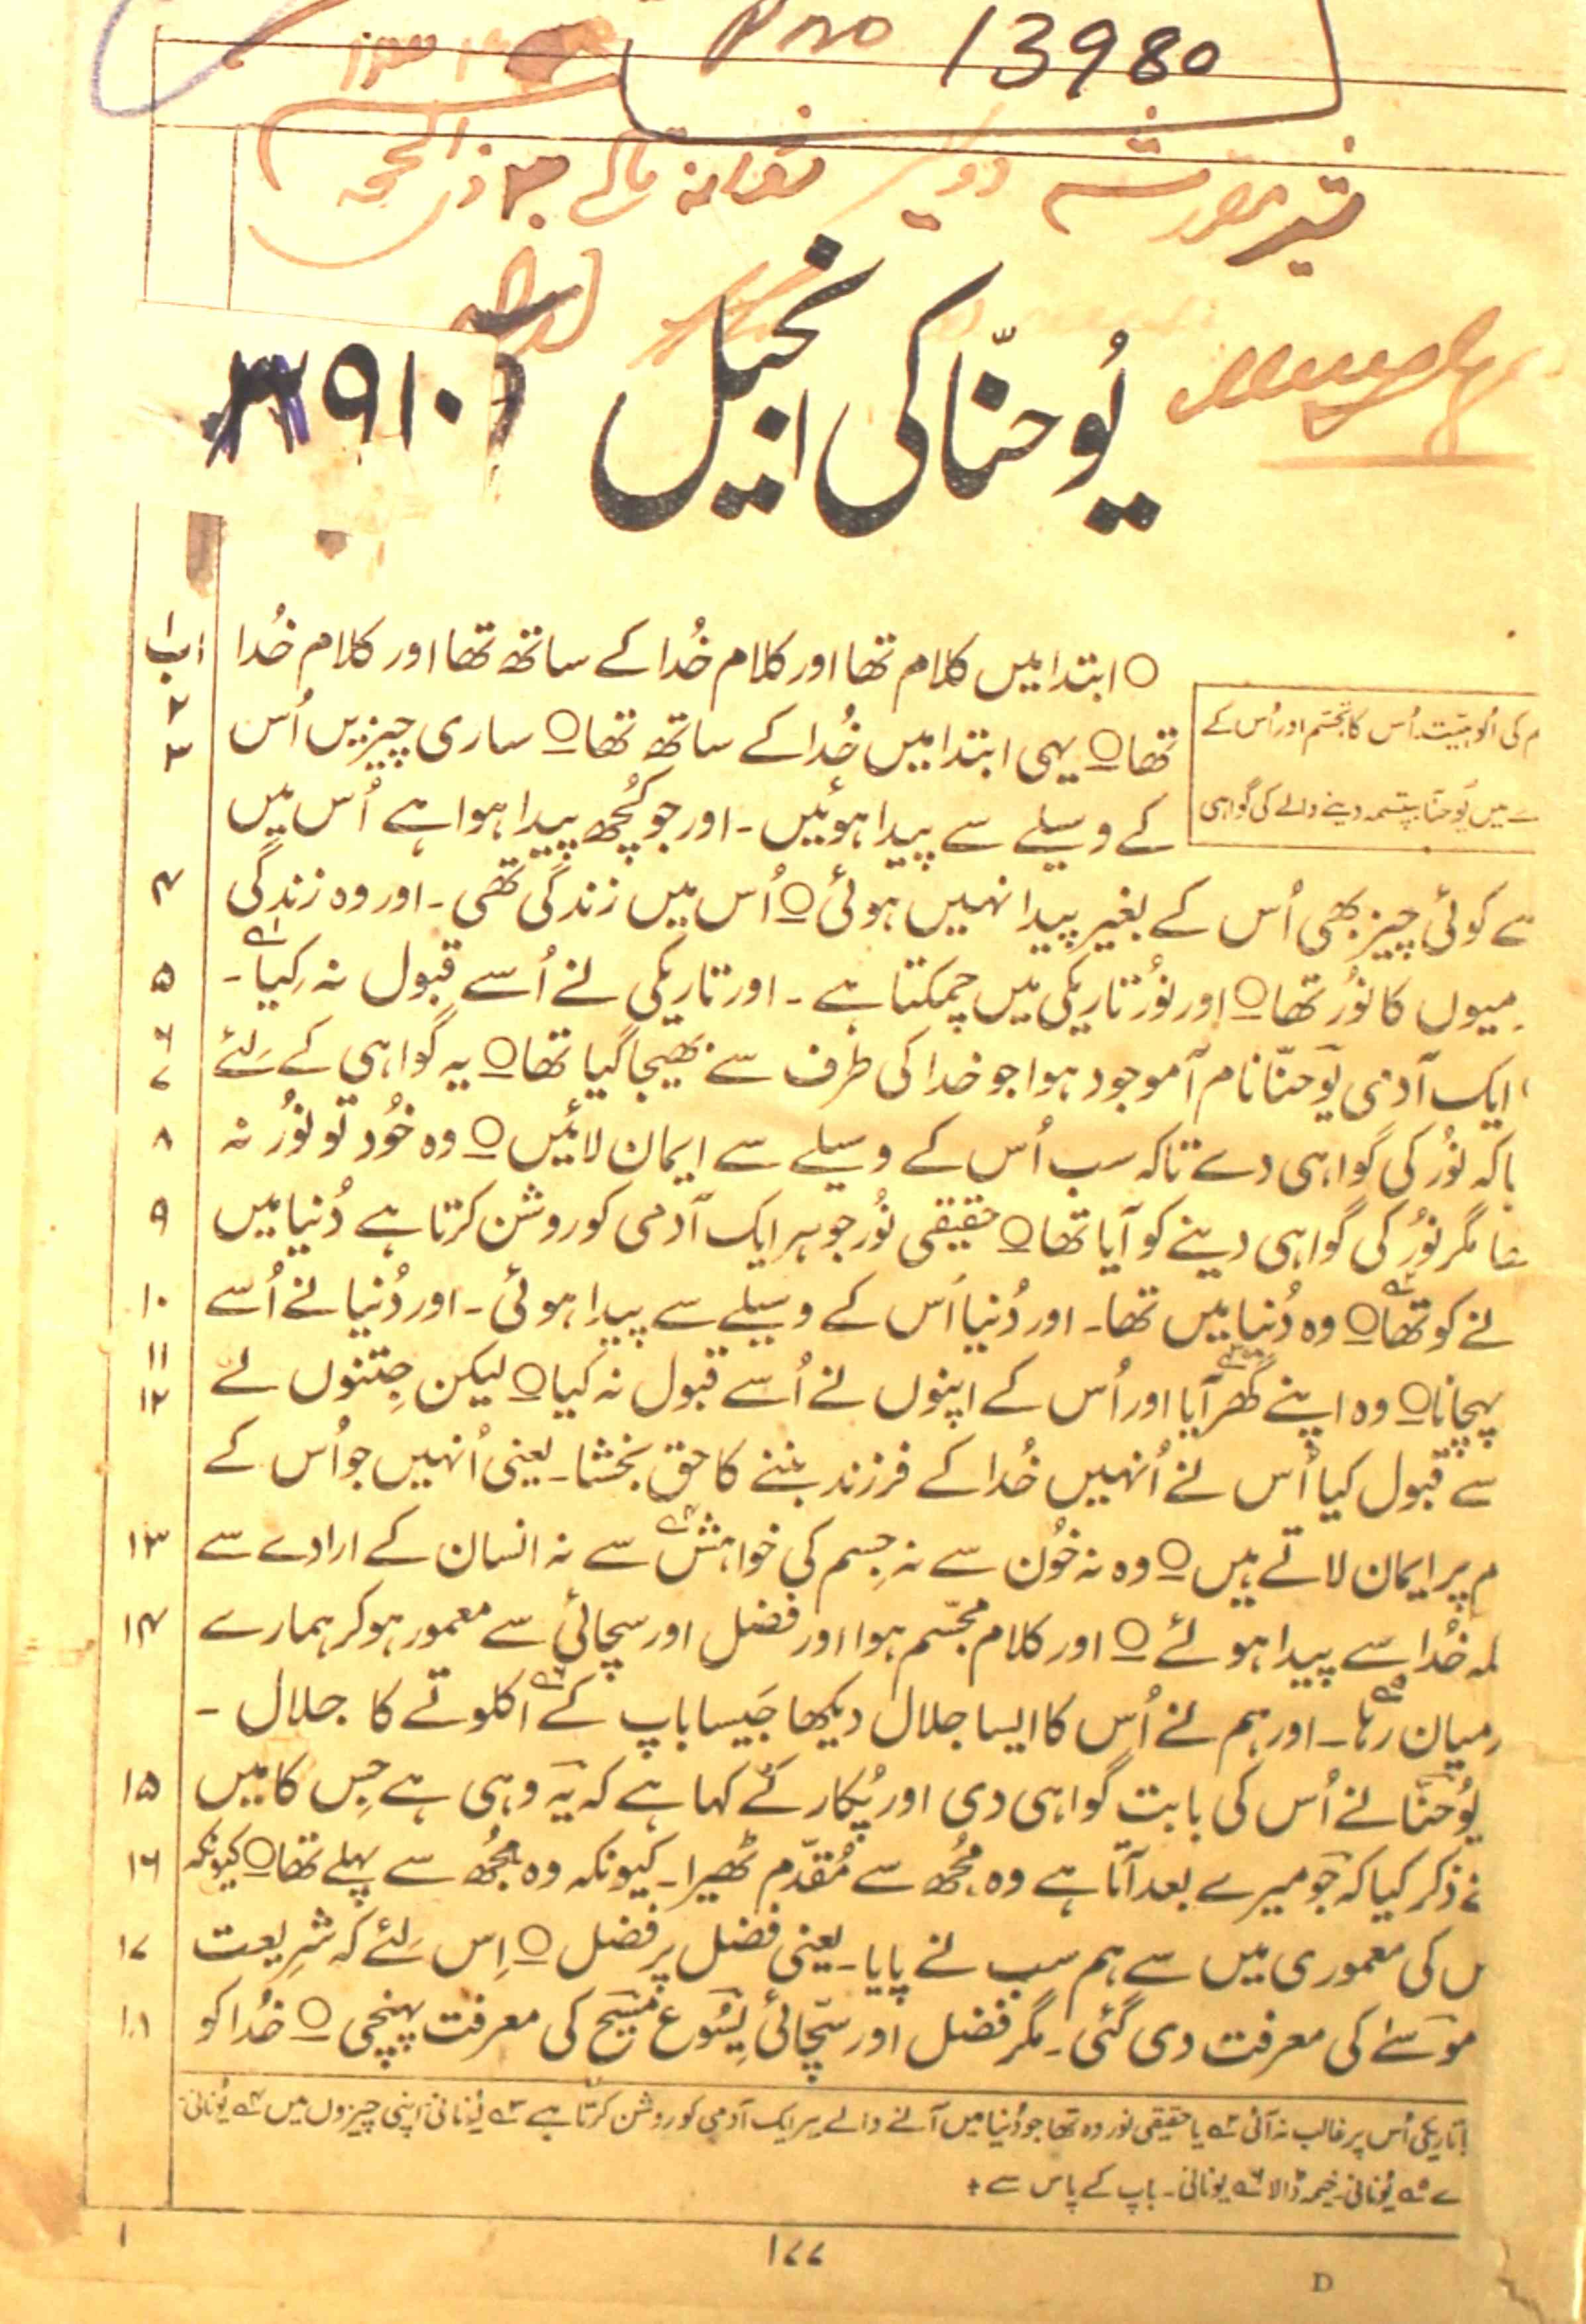 Pno 13980
یُوحنّا کی انجیل
۳۹۱۰
۱ب ا
م کی اُلوہیّت۔ اُس کا تجسّم اور اُس کے
ے میں یُوحنّا بپتسمہ دینے والے کی گواہی
○ ابتدا میں کلام تھا اور کلام خُدا کے ساتھ تھا اور کلام خُدا
تھا ○ یہی ابتدا میں خُدا کے ساتھ تھا ○ ساری چیزیں اُس ۲ ۳
کے وسیلے سے پیدا ہوئیں۔ اور جو کُچھ پیدا ہوا ہے اُس میں
سے کوئی چیز بھی اُس کے بغیر پیدا نہیں ہوئی ○ اُس میں زندگی تھی۔ اور وہ زندگی ۴
میوں کا نُور تھا ○ اور نُور تاریکی میں چمکتا ہے۔ اور تاریکی نے اُسے قبول نہ کِیا۱؎۔ ۵
ایک آدمی یُوحنّا نام آ موجود ہوا جو خدا کی طرف سے بھیجا گیا تھا ○ یہ گواہی کے لئے ۶ ۷
یا کہ نُور کی گواہی دے تاکہ سب اُس کے وسیلے سے ایمان لائیں ○ وہ خُود تو نُور نہ ۸
تھا مگر نُور کی گواہی دینے کو آیا تھا ○ حقیقی نُور جو ہر ایک آدمی کو روشن کرتا ہے دُنیا میں ۹
نے کو تھا۲؎ ○ وہ دُنیا میں تھا۔ اور دُنیا اُس کے وسیلے سے پیدا ہوئی۔ اور دُنیا نے اُسے ۱۰
پہچانا ○ وہ اپنے گھر۳؎ آیا اور اُس کے اپنوں نے اُسے قبول نہ کیا ○ لیکن جِتنوں نے ۱۱ ۱۲
سے قبول کیا اُس نے اُنہیں خُدا کے فرزند بننے کا حق بخشا۔ یعنی اُنہیں جو اُس کے
م پر ایمان لاتے ہیں ○ وہ نہ خُون سے نہ جِسم کی خواہش۴؎ سے نہ انسان کے ارادے سے ۱۳
لمہ خُدا سے پیدا ہوئے ○ اور کلام مجسّم ہوا اور فضل اور سچائی سے معمور ہو کر ہمارے ۱۴
رمیان رہا۵؎۔ اور ہم نے اُس کا ایسا جلال دیکھا جَیسا باپ کے۶؎ اکلوتے کا جلال۔
یُوحنّا نے اُس کی بابت گواہی دی اور پُکار کے کہا ہے کہ یہ وہی ہے جِس کا میں ۱۵
نے ذکر کیا کہ جو میرے بعد آتا ہے وہ مُجھ سے مُقدّم ٹھیرا۔ کیونکہ وہ مُجھ سے پہلے تھا ○ کیونکہ ۱۶
س کی معموری میں سے ہم سب نے پایا۔ یعنی فضل پر فضل ○ اِس لئے کہ شرِیعت ۱۷
موسٰے کی معرفت دی گئی۔ مگر فضل اور سچّائی یِسُوع مسیح کی معرفت پہنچی ○ خُدا کو ۱۸
تاریکی اُس پر غالب نہ آئی ۲؎ یا حقیقی نور وہ تھا جو دُنیا میں آنے والے ہر ایک آدمی کو روشن کرتا ہے ۳؎ یُونانی۔ اپنی چیزوں میں ۴؎ یُونانی۔
ے ۵؎ یُونانی۔ خیمہ ڈالا ۶؎ یونانی۔ باپ کے پاس سے +
۱
۱۷۷
D